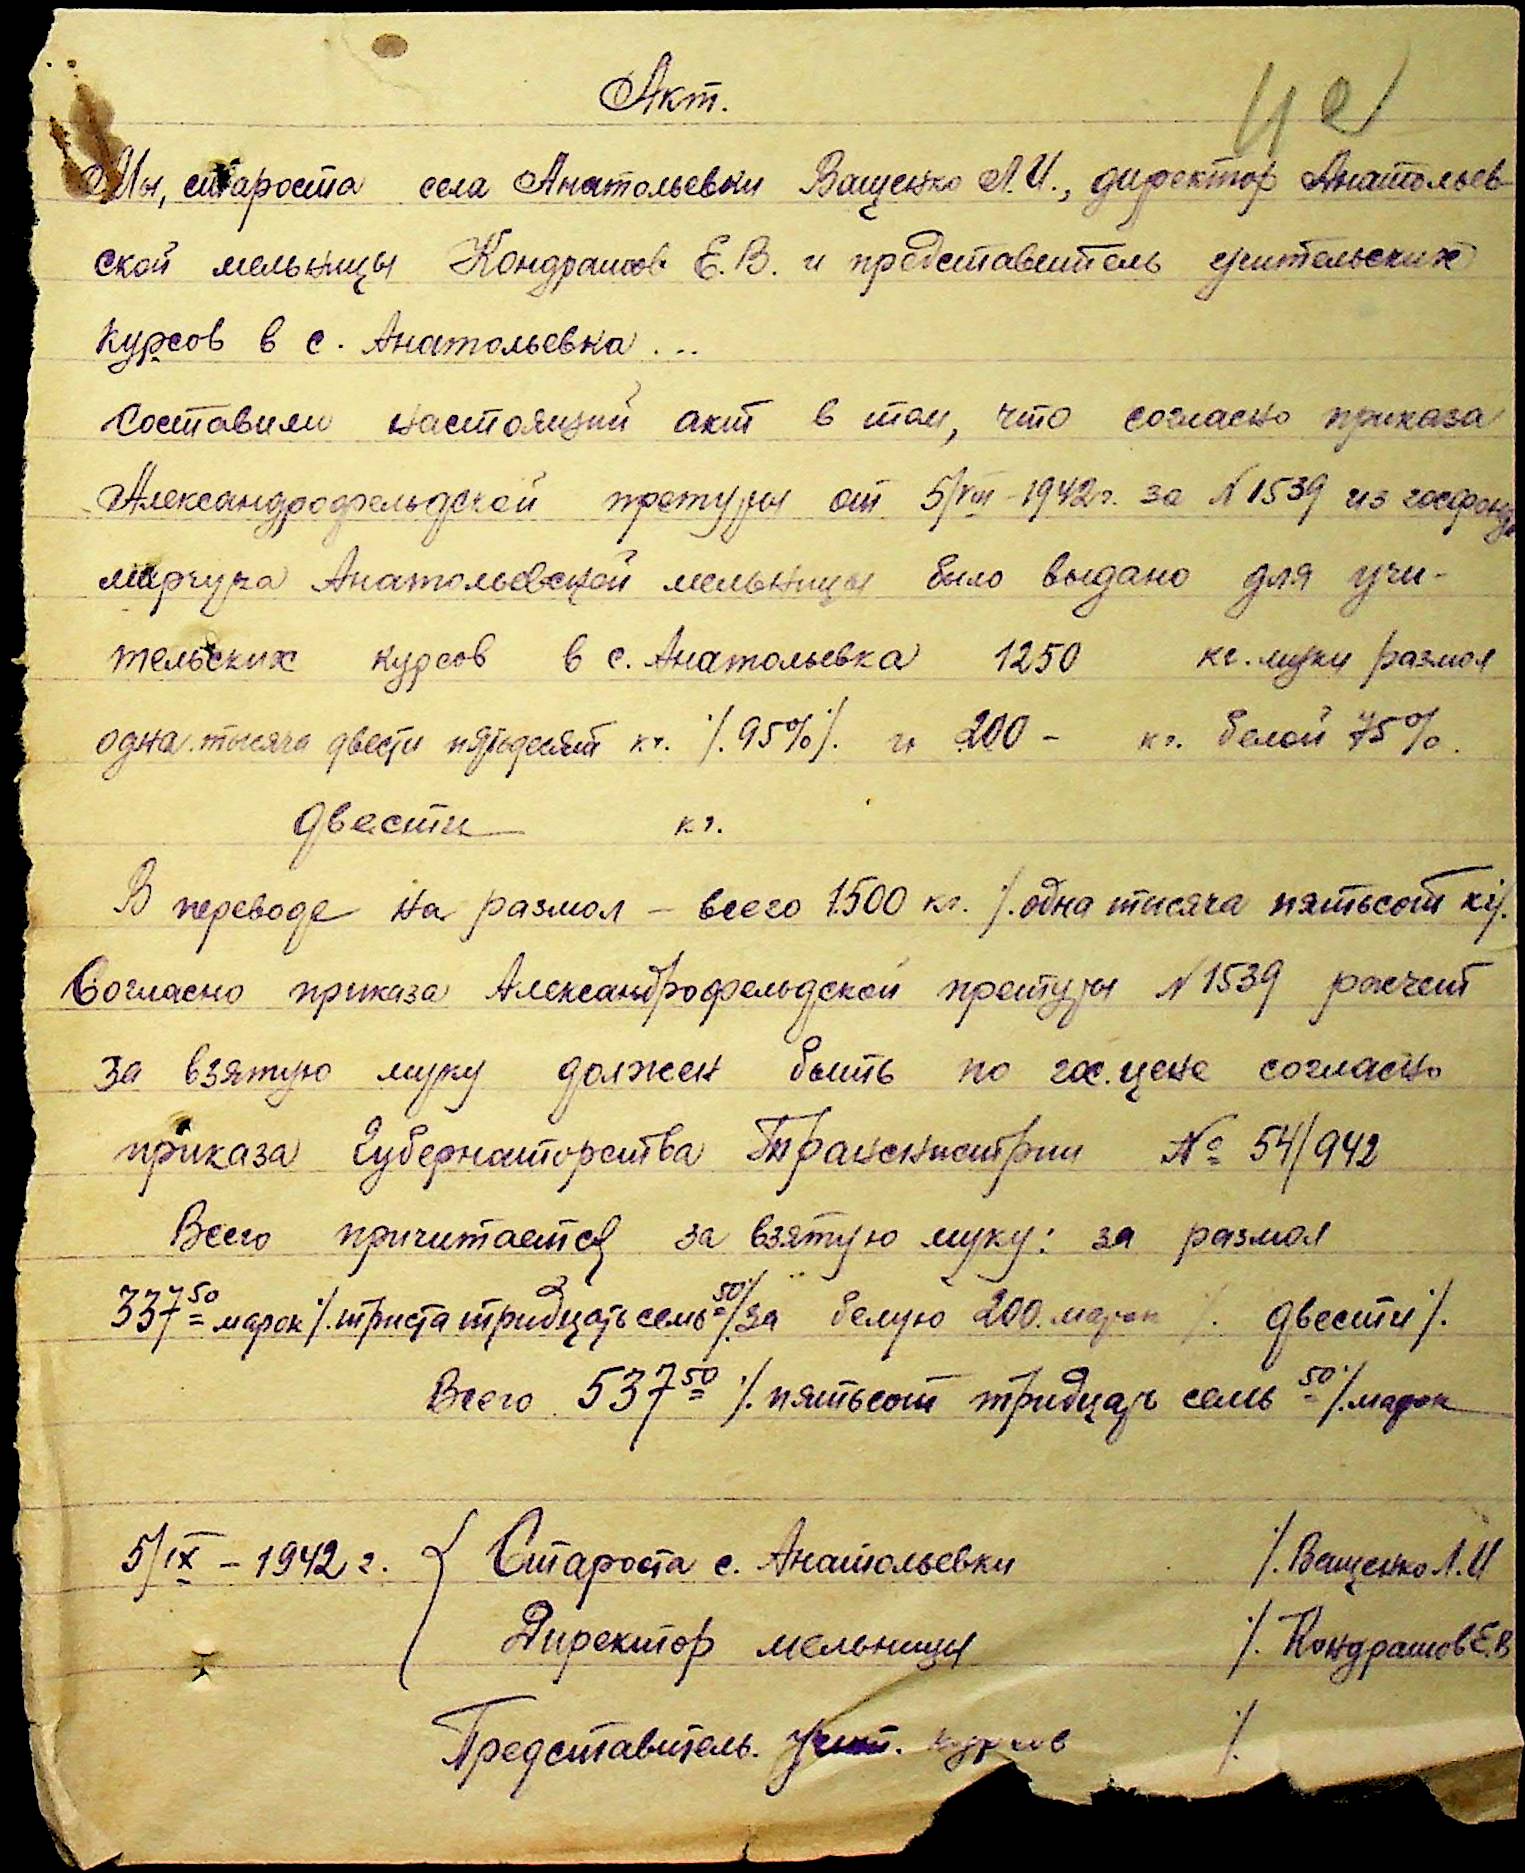 Акт.
Мы, староста села Анатольевки Ващенко Л.И., директор Анатольев-
ской мельницы Кондрашов Е.В. и представитель учительских
курсов в с. Анатольевка ...
составили настоящий акт в том, что согласно приказа
Александрофельдской претуры от 5/VIII-1942г. за N1539 из госфонда
мерчука Анатольевской мельницы было выдано для учи-
тельских курсов в с. Анатольевка 1250 кг. муки размол
одна тысяча двести пятьдесят кг. /.95%/. и 200 - кг. белой 75%.
двести кг.
В переводе на размол - всего 1500 кг. /.одна тысяча пятьсот кг/.
Согласно приказа Александрофельдской претуры N1539 расчет
за взятую муку должен быть по гос. цене согласно
приказа Губернаторства Транснистрии № 54/942
Всего причитается за взятую муку: за размол
337 50 марок /.триста тридцать семь 50/. за белую 200. марок /. двести/.
Всего 537 50 /.пятьсот тридцать семь 50/. марок
5/IX - 1942 г. { Староста с. Анатольевки /. Ващенко Л.И
Директор мельницы /. Кондрашов Е.В
Представитель. учит. курсов /.